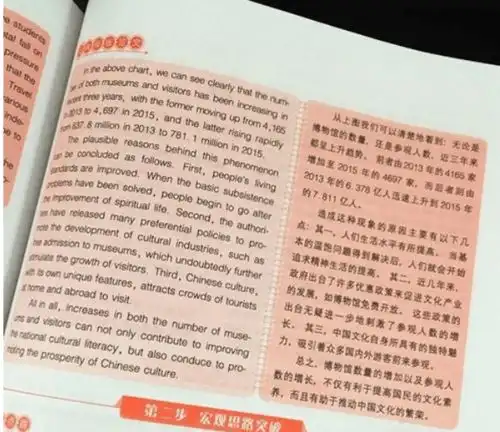 e students
tal fall on
pressure
that the
Travel
various
inde-
be to
he
In the above chart, we can see clearly that the num-
ber of both museums and visitors has been increasing in
recent three years, with the former moving up from 4,165
in 2013 to 4,697 in 2015, and the latter rising rapidly
from 637.8 million in 2013 to 781.1 million in 2015.
The plausible reasons behind this phenomenon
can be concluded as follows. First, people's living
standards are improved. When the basic subsistence
problems have been solved, people begin to go after
the improvement of spiritual life. Second, the authori-
ties have released many preferential policies to pro-
mote the development of cultural industries, such as
free admission to museums, which undoubtedly further
stimulate the growth of visitors. Third, Chinese culture,
with its own unique features, attracts crowds of tourists
at home and abroad to visit.
All in all, increases in both the number of muse-
ums and visitors can not only contribute to improving
the national cultural literacy, but also conduce to pro-
moting the prosperity of Chinese culture.
从上图我们可以清楚地看到: 无论是
博物馆的数量, 还是参观人数, 近三年来
都呈上升趋势, 前者由2013年的4165家
增加至2015年的4697家, 而后者则由
2013年的6.378亿人迅速上升到2015年
的7.811亿人。
造成这种现象的原因主要有以下几
点: 其一, 人们生活水平有所提高, 当基
本的温饱问题得到解决后, 人们就会开始
追求精神生活的提高。其二, 近几年来,
政府出台了许多优惠政策来促进文化产业
的发展, 如博物馆免费开放, 这些政策的
出台无疑进一步地刺激了参观人数的增
长。其三, 中国文化自身所具有的独特魅
力, 吸引着众多国内外游客前来参观。
总之, 博物馆数量的增加以及参观人
数的增长, 不仅有利于提高国民的文化素
养, 而且有助于推动中国文化的繁荣。
第二步 宏观思路突破